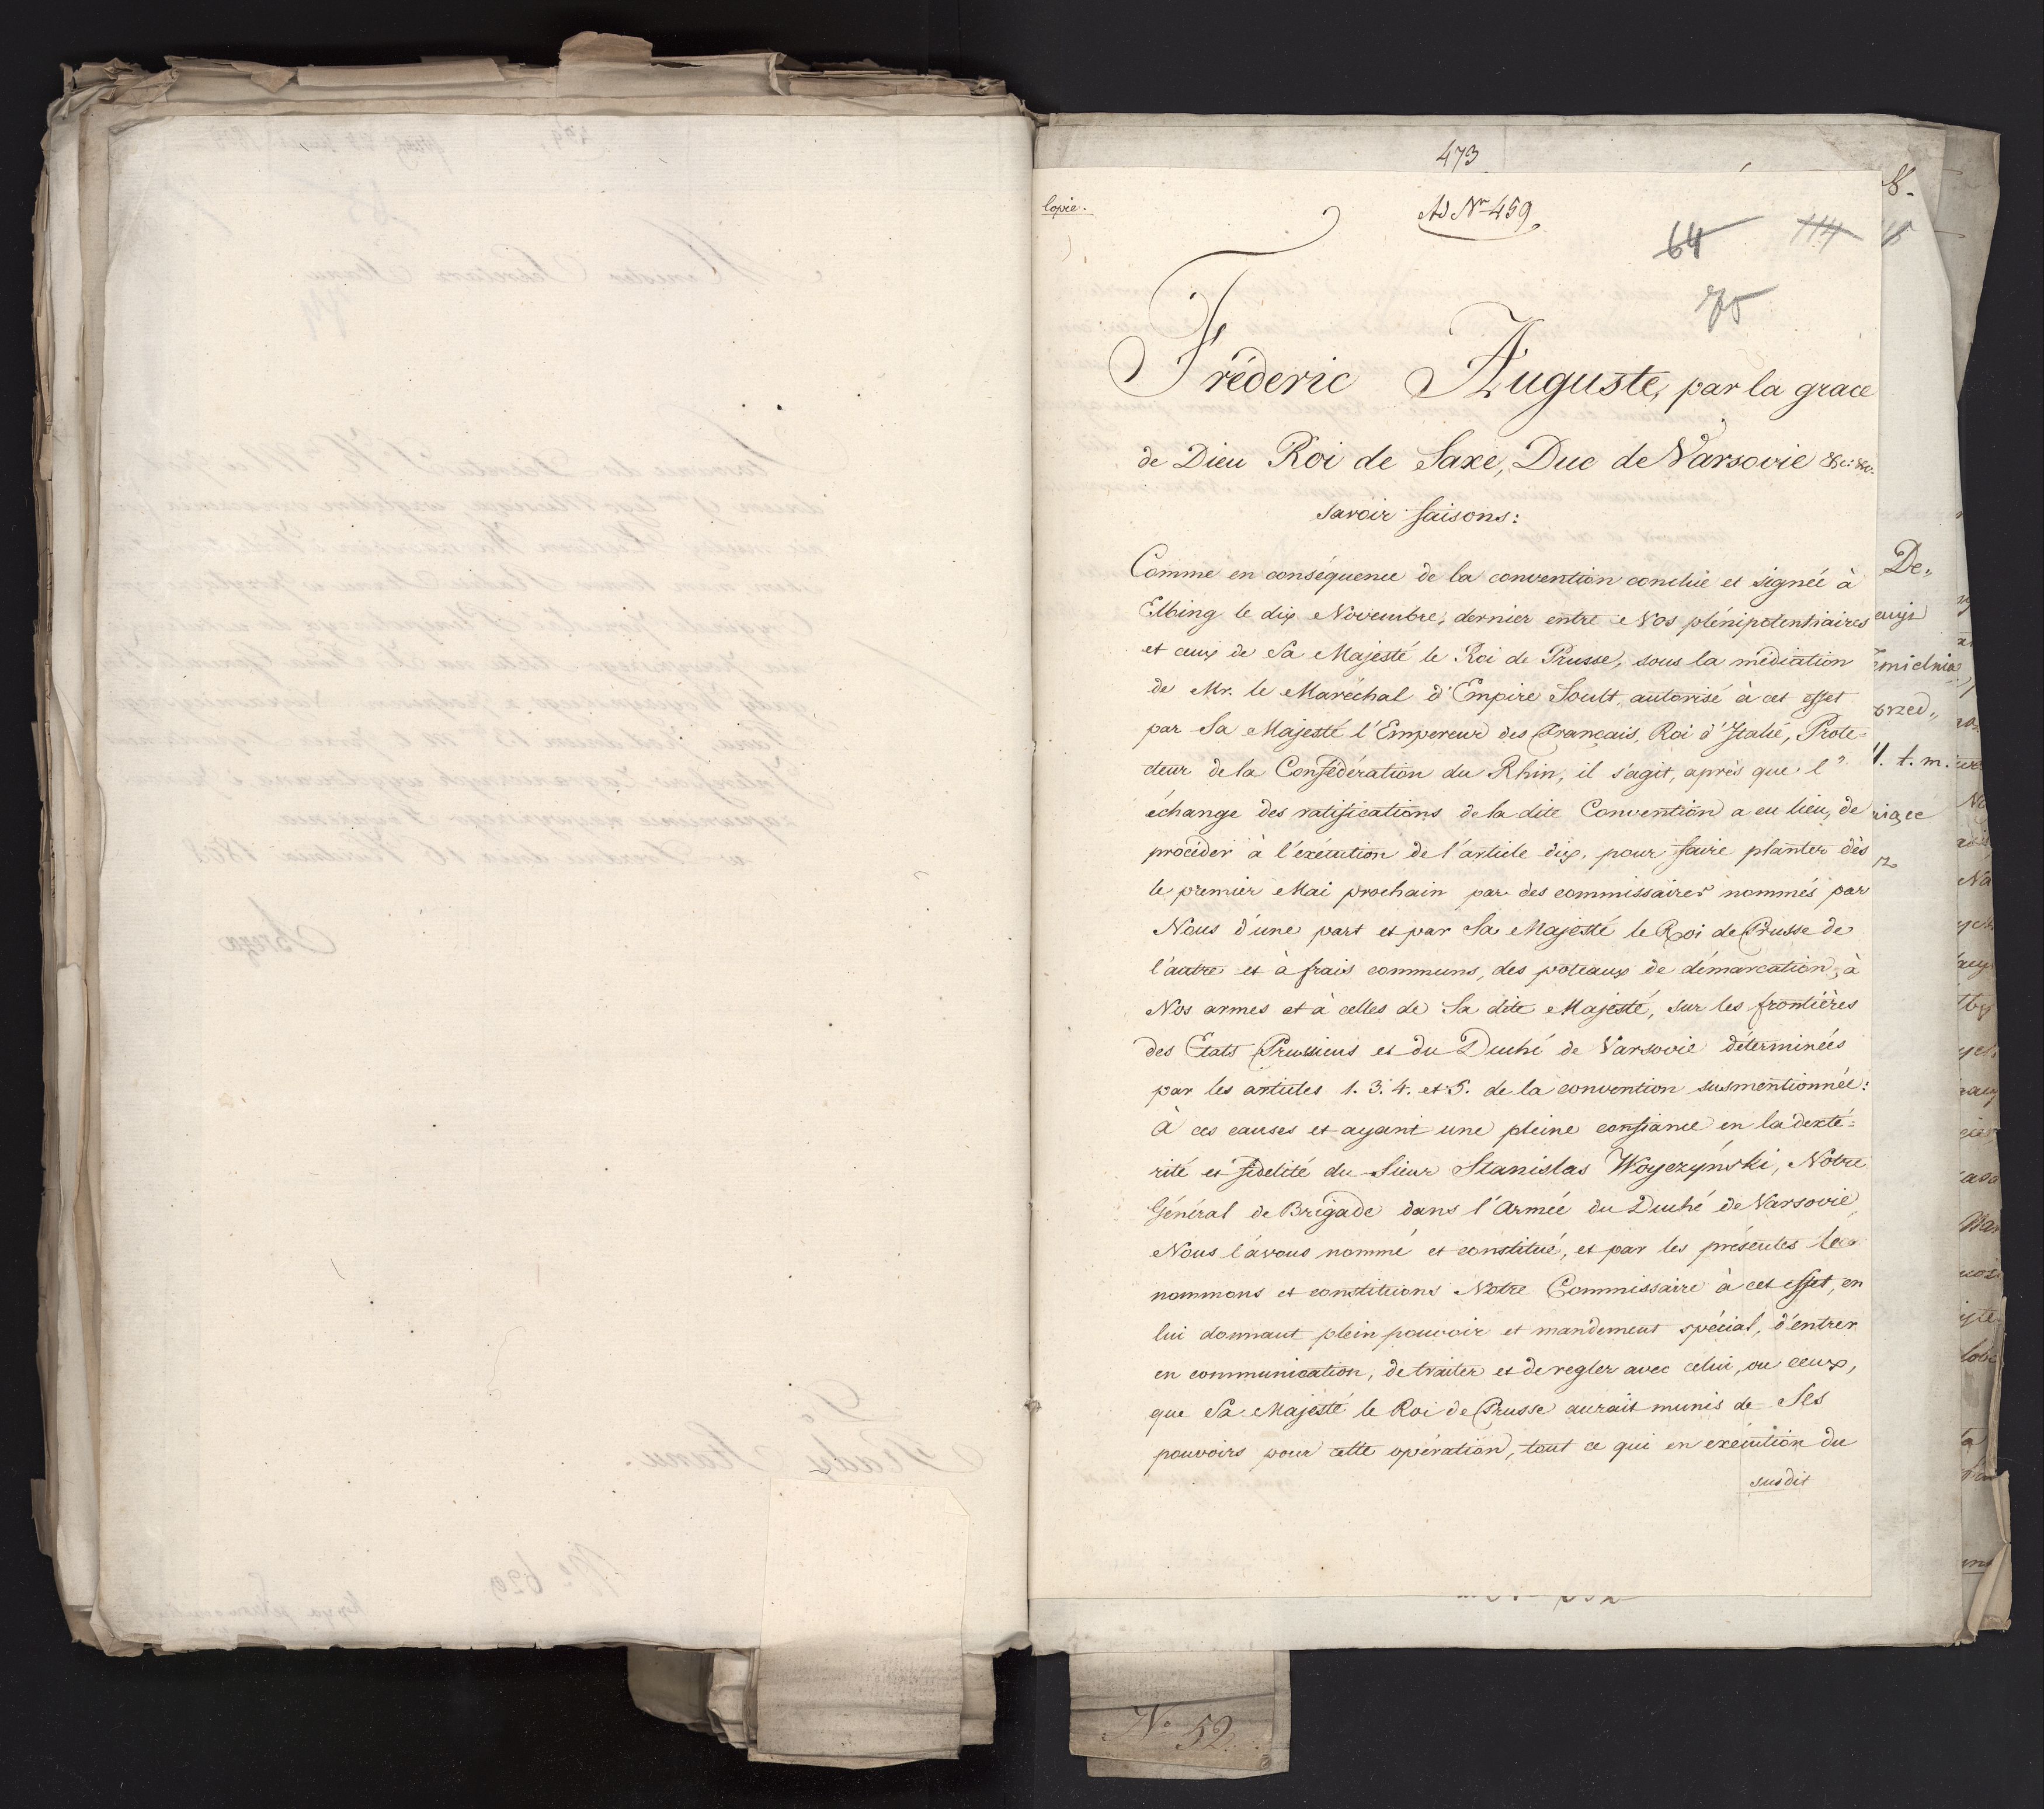 473
Copie.
Ad Nr 459
64
114
Fréderic Auguste, par la grace
de Dieu Roi de Saxe, Duc de Varsovie &c: &c.
savoir faisons:
Comme en conséquence de la convention conclüe et signée à
Elbing le dix Novembre, dernier entre Nos plénipotentiaires
et ceux de Sa Majesté le Roi de Prusse, sous la médiation
de Mr. le Maréchal d'Empire Soult, autorisé à cet effet
par Sa Majesté l'Empereur des Français, Roi d'Italie, Prote=
cteur de la Confédération du Rhin, il s'agit, après que l'
échange des ratifications de la dite Convention a eu lieu, de
procéder à l'exécution de l'article dix, pour faire planter dès
le premier Mai prochain par des commissaires nommés par
Nous d'une part et par Sa Majesté le Roi de Prusse de
l'autre et à frais communs, des poteaux de démarcation, à
Nos armes et à celles de Sa dite Majesté, sur les frontières
des Etats Prussiens et du Duché de Varsovie déterminées
par les articles 1. 3. 4. et 5. de la convention susmentionnée:
à ces causes et ayant une pleine confiance en la dexté=
rité et fidelité du Sieur Stanislas Woyczyński, Notre
Général de Brigade dans l'Armée du Duché de Varsovie,
Nous l'avons nommé et constitué, et par les présentes le
nommons et constituons Notre Commissaire à cet effet, en
lui donnant plein pouvoir et mandement spécial, d'entrer
en communication, de traiter et de regler avec celui, ou ceux,
que Sa Majesté le Roi de Prusse aurait munis de Ses
pouvoirs pour cette opération, tout ce qui en exécution du
susdit
De,,
przed,,
No 52